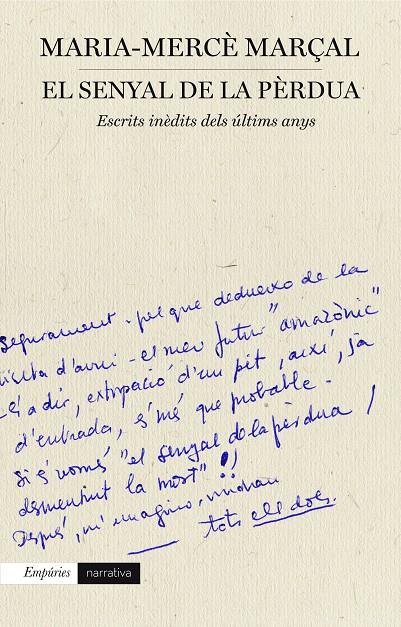 MARIA-MERCÈ MARÇAL
EL SENYAL DE LA PÈRDUA
Escrits inèdits dels últims anys
Segurament - pel que dedueixo de la
visita d'avui - el meu futur "amazònic"
- és a dir, extirpació d'un pit, així, ja
d'entrada, és més que probable -
Si és només "el senyal de la pèrdua /
desmentint la mort"!!
Després, m'imagino, vindran
tots ells dos.
Empúries narrativa